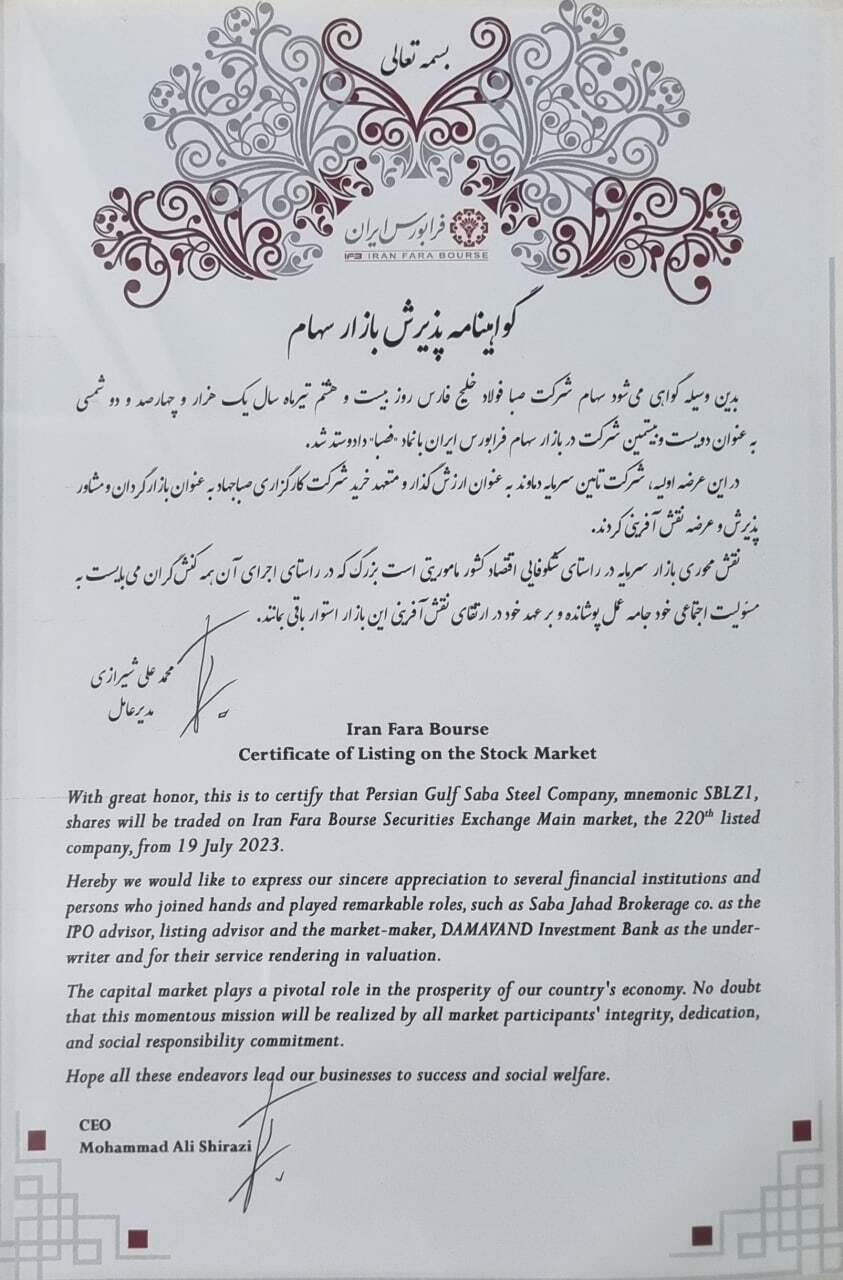 بسمه تعالی
فرابورس ایران
IFB IRAN FARA BOURSE
گواهینامه پذیرش بازار سهام
بدین وسیله گواهی می‌شود سهام شرکت صبا فولاد خلیج فارس روز بیست و هشتم تیرماه سال یک هزار و چهارصد و دو شمسی
به عنوان دویست و بیستمین شرکت در بازار سهام فرابورس ایران با نماد "فصبا" دادوستد شد.
در این عرضه اولیه، شرکت تامین سرمایه دماوند به عنوان ارزش گذار و متعهد خرید شرکت کارگزاری صباجهاد به عنوان بازارگردان و مشاور
پذیرش و عرضه نقش آفرینی کردند.
نقش محوری بازار سرمایه در راستای شکوفایی اقتصاد کشور ماموریتی است بزرگ که در راستای اجرای آن همه کنش گران می‌بایست به
مسئولیت اجتماعی خود جامه عمل پوشانده و بر عهد خود در ارتقای نقش آفرینی این بازار استوار باقی بمانند.
محمد علی شیرازی
مدیرعامل
Iran Fara Bourse
Certificate of Listing on the Stock Market
With great honor, this is to certify that Persian Gulf Saba Steel Company, mnemonic SBLZ1,
shares will be traded on Iran Fara Bourse Securities Exchange Main market, the 220th listed
company, from 19 July 2023.
Hereby we would like to express our sincere appreciation to several financial institutions and
persons who joined hands and played remarkable roles, such as Saba Jahad Brokerage co. as the
IPO advisor, listing advisor and the market-maker, DAMAVAND Investment Bank as the under-
writer and for their service rendering in valuation.
The capital market plays a pivotal role in the prosperity of our country's economy. No doubt
that this momentous mission will be realized by all market participants' integrity, dedication,
and social responsibility commitment.
Hope all these endeavors lead our businesses to success and social welfare.
CEO
Mohammad Ali Shirazi